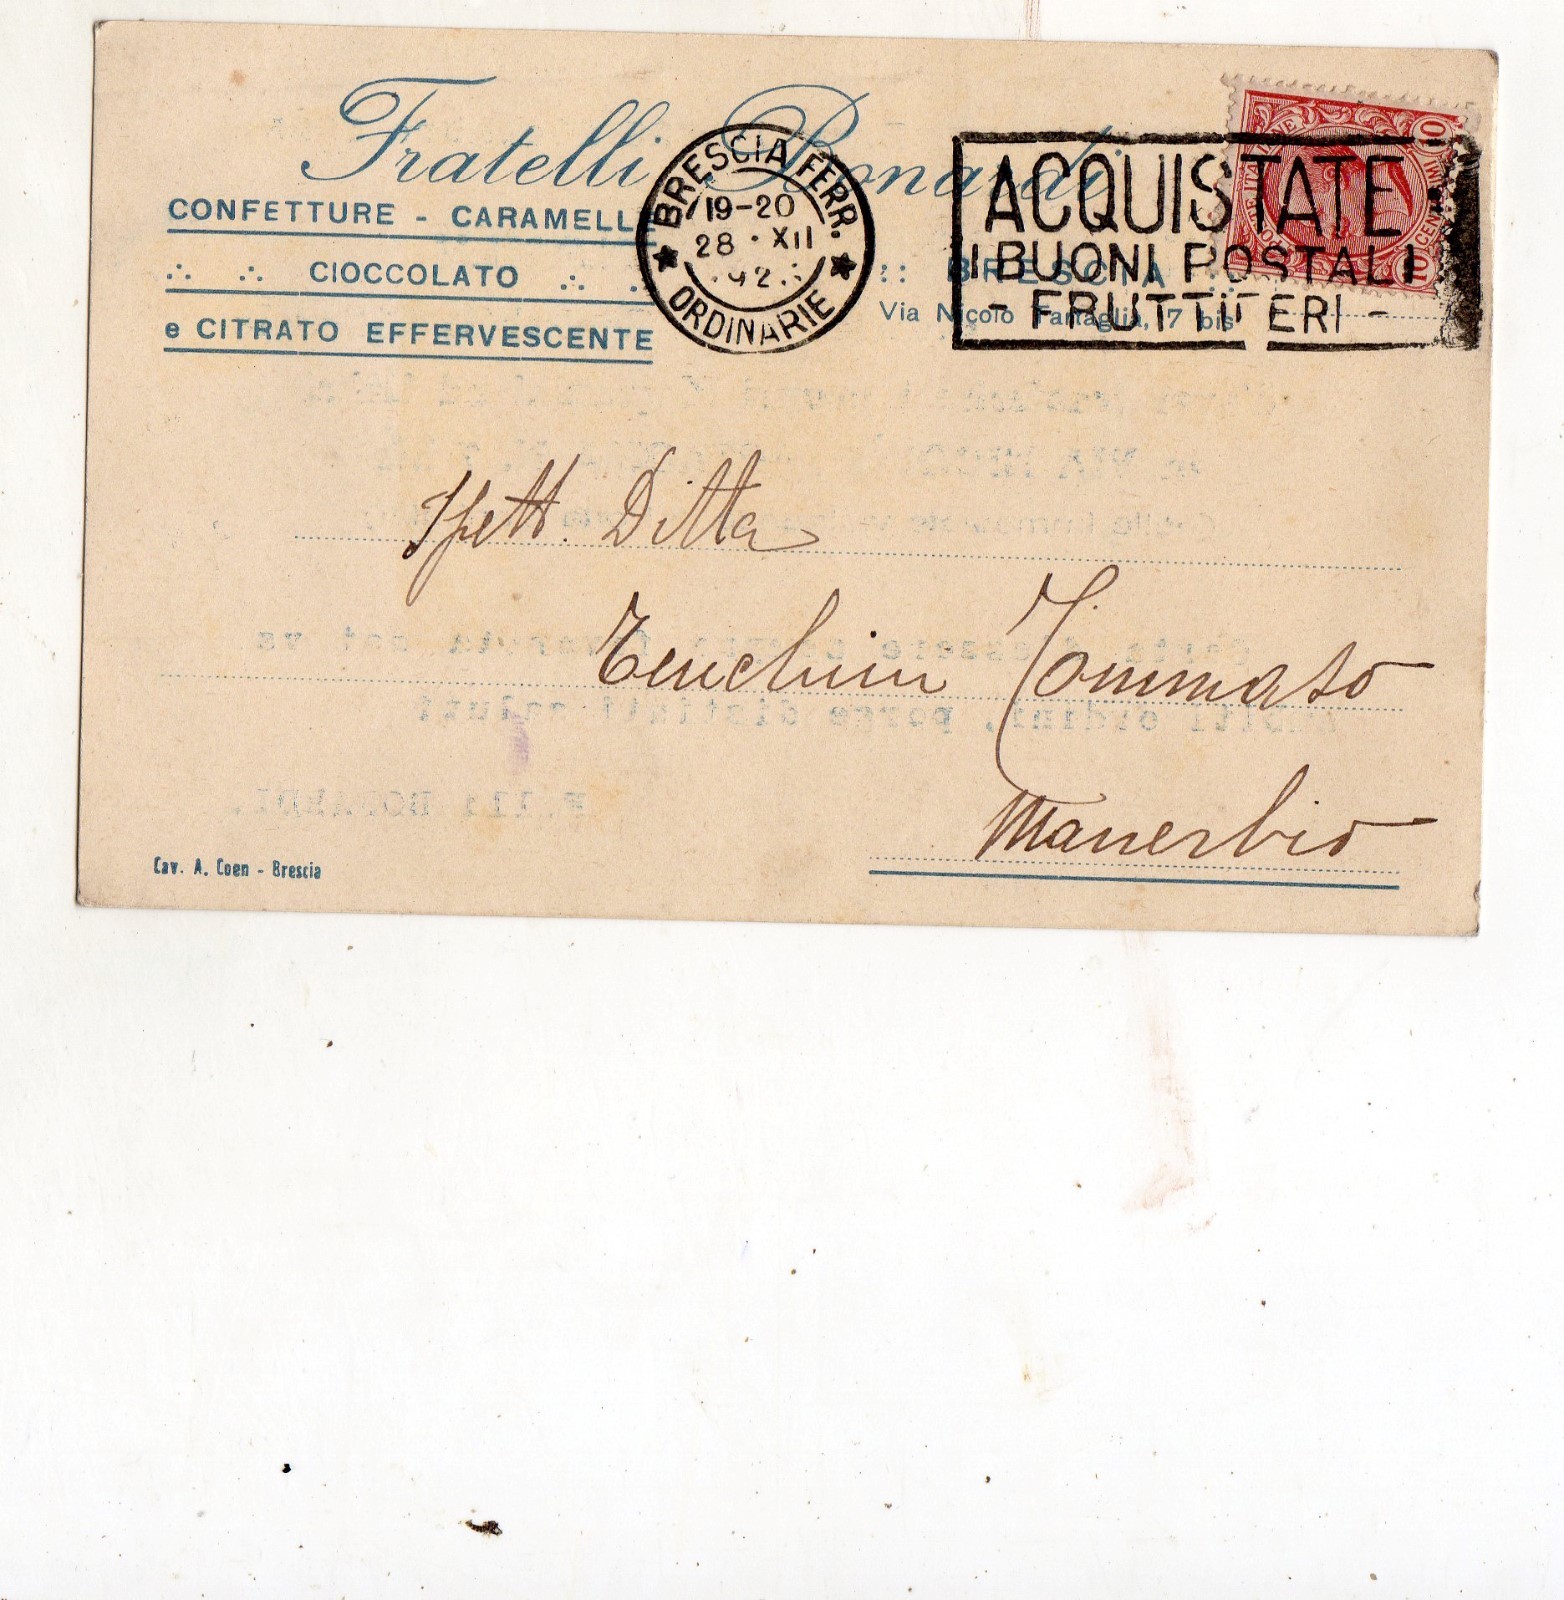 Fratelli Bonardi
CONFETTURE - CARAMELLE
CIOCCOLATO
e CITRATO EFFERVESCENTE
BRESCIA FERR.
19-20
28 · XII
ORDINARIE
:: BRESCIA ::
Via Nicolo Tartaglia, 7 bis
ACQUISTATE
I BUONI POSTALI
- FRUTTIFERI -
10
CENT. MI 10
Spett. Ditta
Tenchini Tommaso
Manerbio
Cav. A. Coen - Brescia